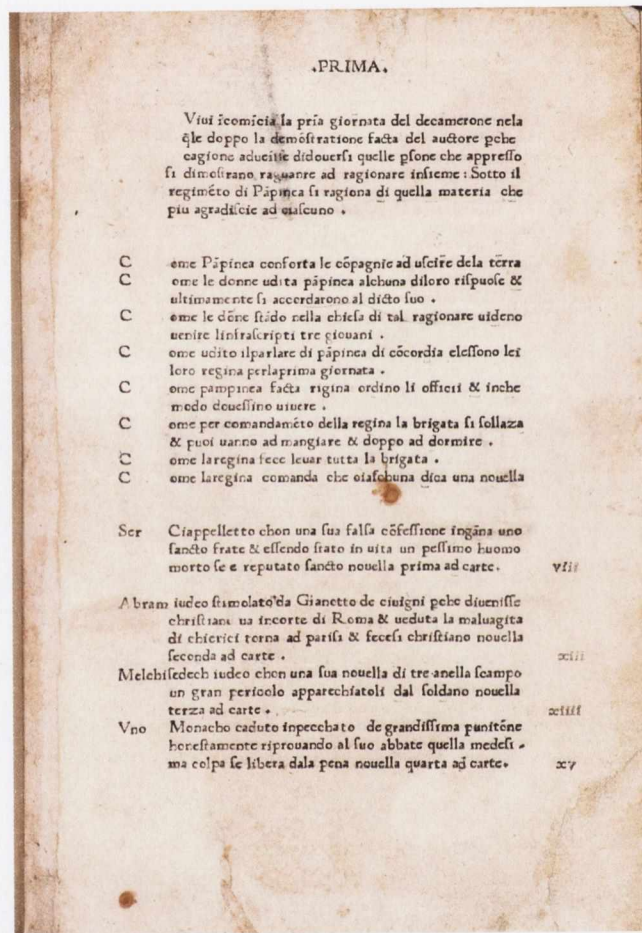 .PRIMA.
Viui īcomīcia la pria giornata del decamerone nela
q̄le doppo la demōstratione facta del auctore pche
cagione aduenisse didouersi quelle psone che appresso
si dimostrano raguanre ad ragionare insieme : Sotto il
regimēto di Pāpinea si ragiona di quella materia che
piu agradiscie ad ciascuno .
C ome Pāpinea conforta le cōpagnie ad uscire dela terra
C ome le donne udita pāpinea alchuna diloro rispuose &
ultimamente si accordarono al dicto suo .
C ome le dōne stādo nella chiesa di tal ragionare uideno
uenire linfrascripti tre giouani .
C ome udito ilparlare di pāpinea di cōcordia elessono lei
loro regina perlaprima giornata .
C ome pampinea facta rigina ordino li officii & inche
modo douessino uiuere .
C ome per comandamēto della regina la brigata si sollaza
& puoi uanno ad mangiare & doppo ad dormire .
C ome laregina fece leuar tutta la brigata .
C ome laregina comanda che ciaschuna dica una nouella
Ser Ciappelletto chon una sua falsa cōfessione ingāna uno
sancto frate & essendo stato in uita un pessimo huomo
morto se e reputato sancto nouella prima ad carte. viii
Abram iudeo stimolato da Gianetto de ciuigni pche diuenisse
christiano ua incorte di Roma & ueduta la maluagita
di chierici torna ad parisi & fecesi christiano nouella
seconda ad carte . xiii
Melchisedech iudeo chon una sua nouella di tre anella scampo
un gran pericolo apparecchiatoli dal soldano nouella
terza ad carte . xiiii
Vno Monacho caduto inpecchato de grandissima punitōne
honestamente riprouando al suo abbate quella medesi .
ma colpa se libera dala pena nouella quarta ad carte. xv